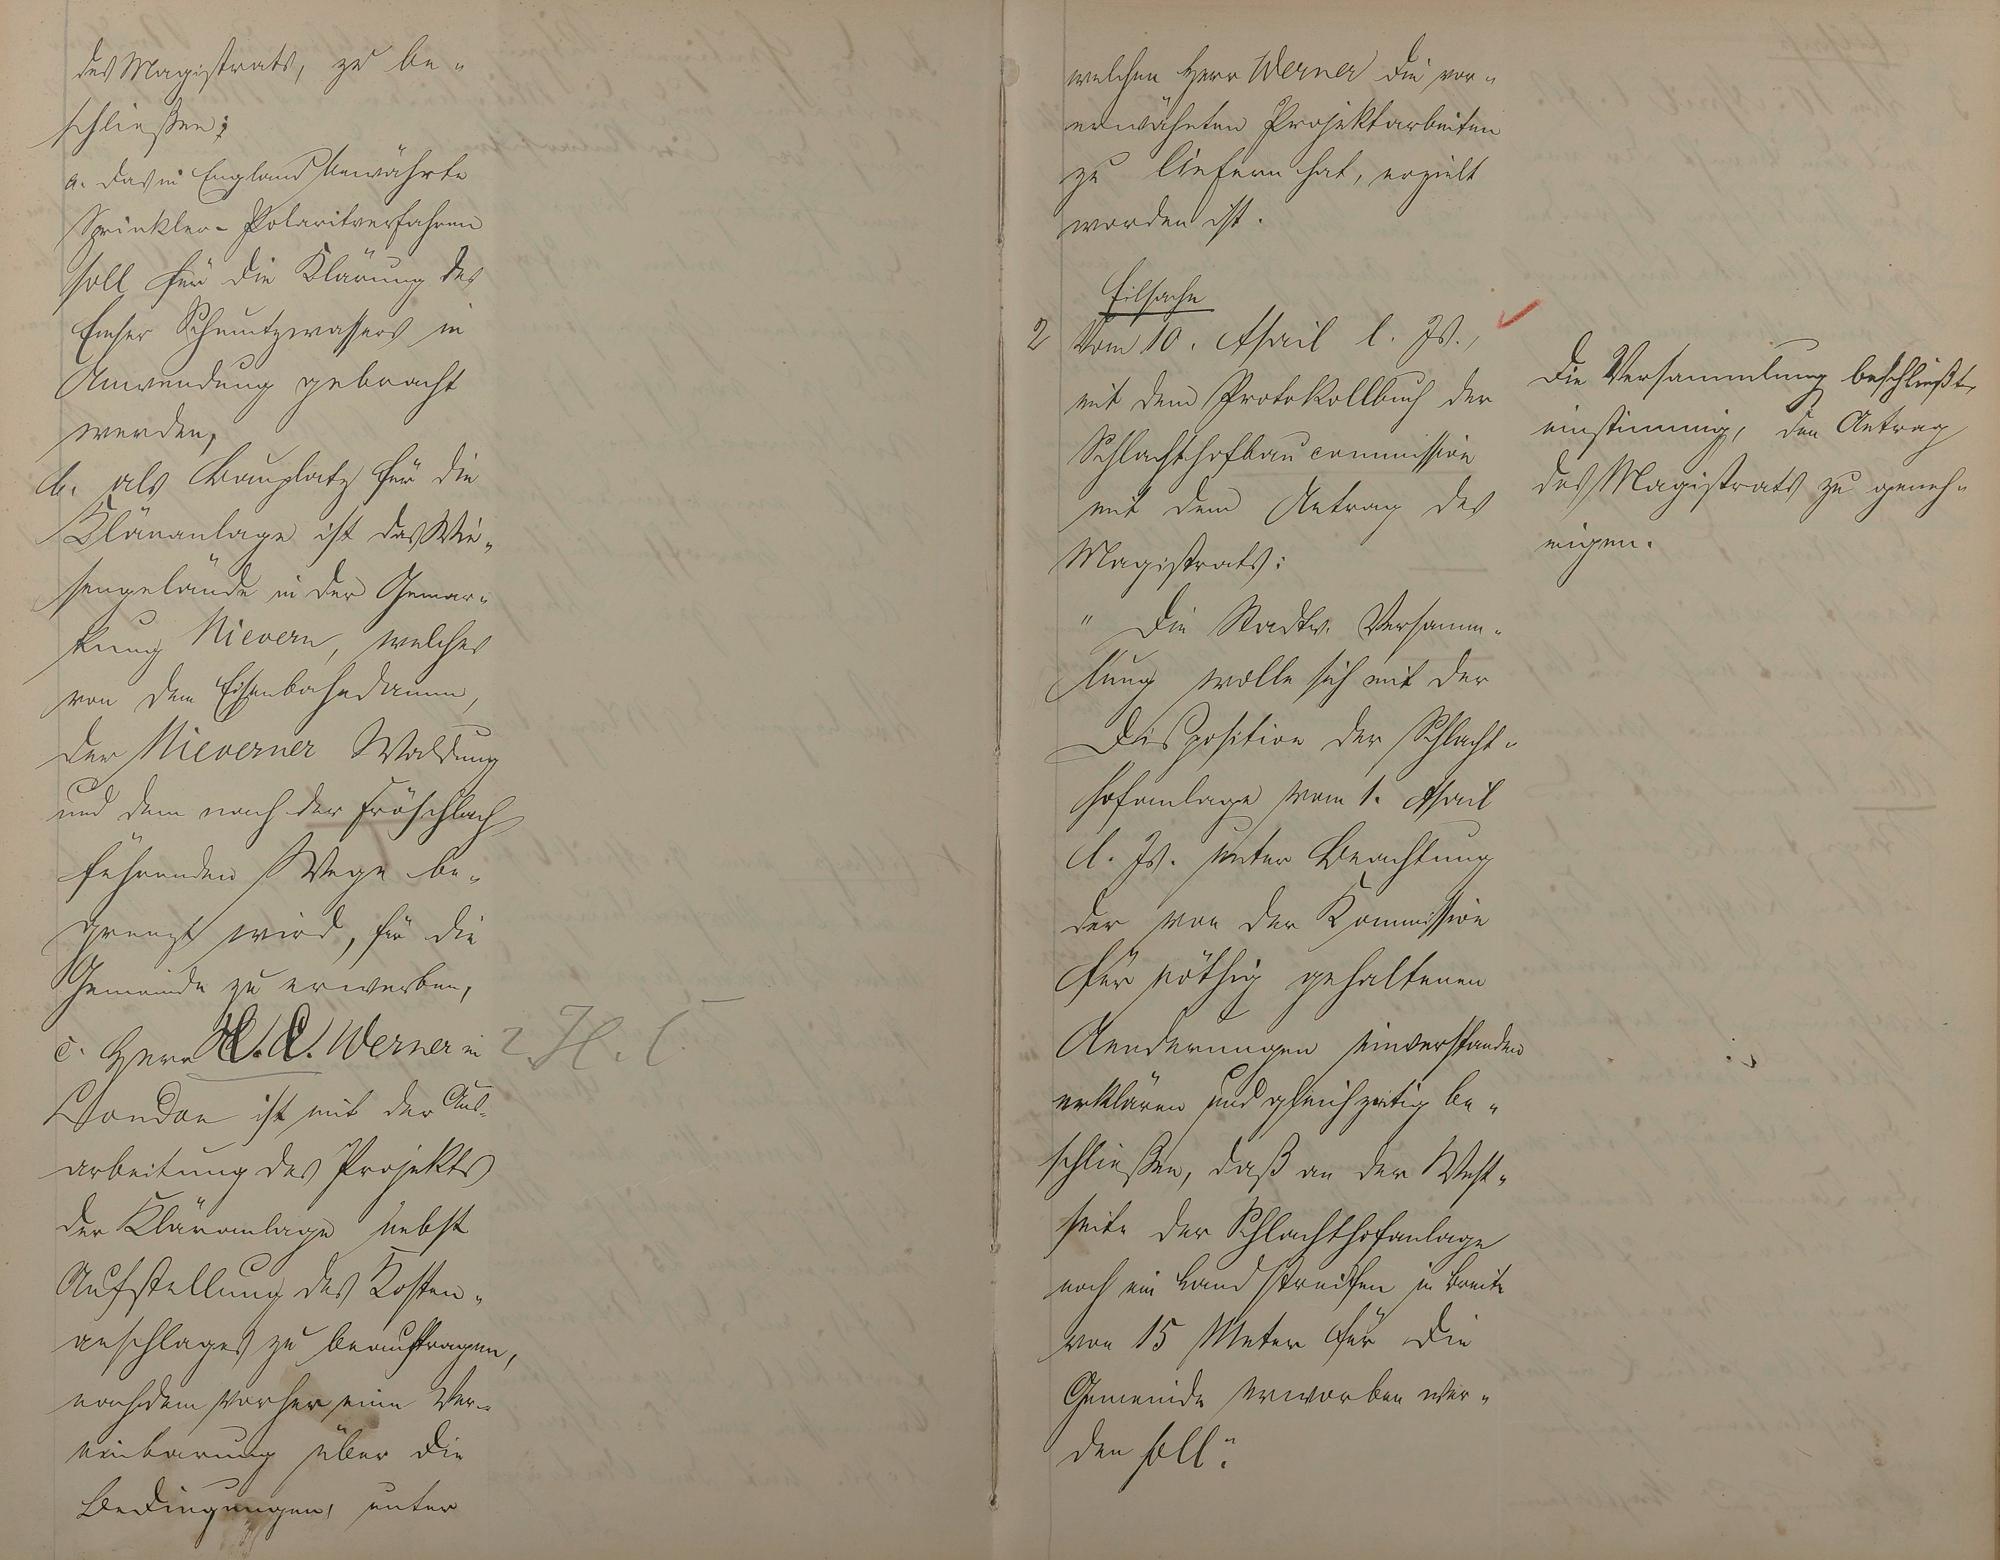 des Magistrats, zu be-
schließen:
a. das in England bewährte
Sprinkler-Polaritverfahren
soll für die Klärung des
Emser Schmutzwassers in
Anwendung gebracht
werden,
b. als Bauplatz für die
Kläranlage ist das Wie-
sengelände in der Gemar-
kung Nievern, welches
von dem Eisenbahndamm,
der Nieverner Waldung
und dem nach der Fröschbach
führenden Wege be-
grenzt wird, für die
Gemeinde zu erwerben,
c. Herr H. C. Werner in
London ist mit der Aus-
arbeitung des Projekts
der Kläranlage nebst
Aufstellung des Kosten-
anschlages zu beauftragen,
nachdem vorher eine Ver-
einbarung über die
Bedingungen, unter
? H. C.
welchen Herr Werner die vor-
erwähnten Projektarbeiten
zu liefern hat, erzielt
worden ist.
Eilsache
2 Vom 10. April l. Js.,
mit dem Protokollbuch der
Schlachthofbaucommission
mit dem Antrag des
Magistrats:
" Die Stadtv. Versamm-
lung wolle sich mit der
Disposition der Schlacht-
hofanlage vom 1. April
l. Js. unter Beachtung
der von der Kommission
für nöthig gehaltenen
Aenderungen einverstanden
erklären und gleichzeitig be-
schließen, daß an der West-
seite der Schlachthofanlage
noch ein Landstreifen in Breite
von 15 Meter für die
Gemeinde erworben wer-
den soll."
Die Versammlung beschließt
einstimmig, den Antrag
des Magistrats zu geneh-
migen.